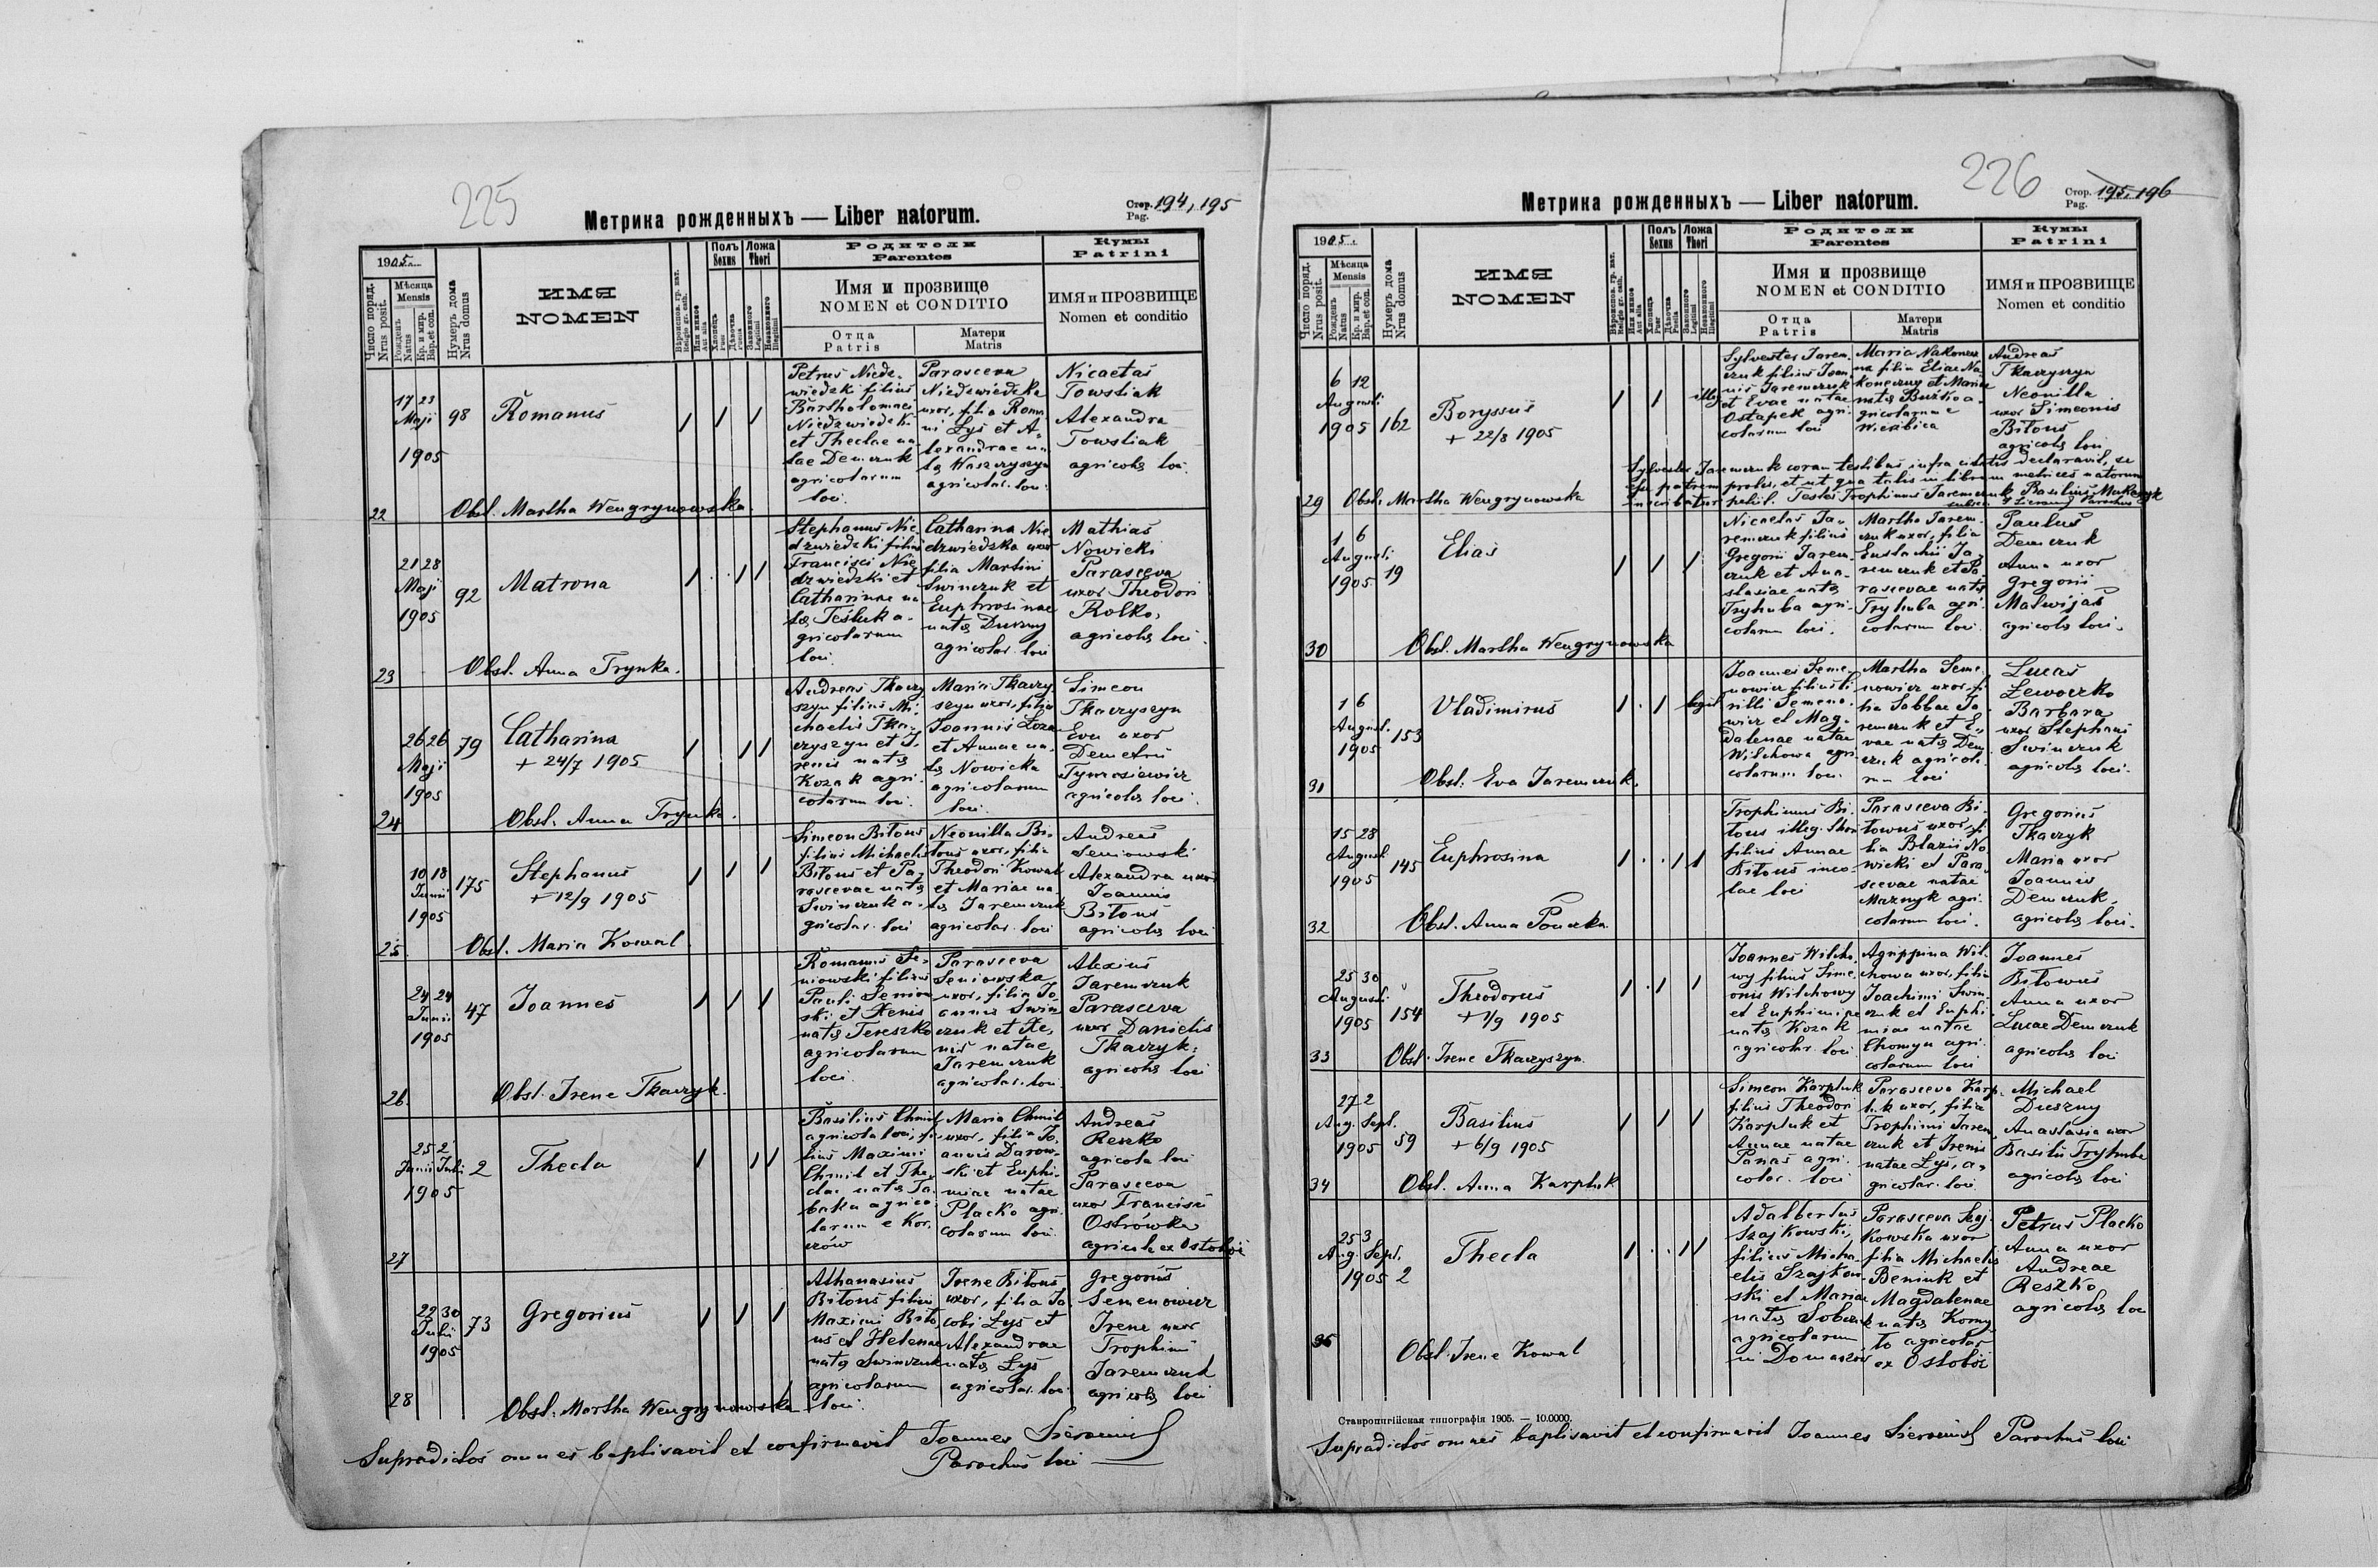 225
Метрика рожденныхъ — Liber natorum.
Стор. 194, 195
Pag.
1905
Число поряд.
Nrus posit.
Мѣсяца
Mensis
Рожденъ
Natus
Кр. и мир.
Bap. et con.
Нумеръ дома
Nrus domus
ИМЯ
NOMEN
Вѣроиспов. гр. кат.
Religio gr. cath.
Или инное
Aut alia
Полъ
Sexus
Хлопець
Puer
Дѣвочка
Puella
Ложа
Thori
Законного
Legitimi
Незаконного
Illegitimi
Родители
Parentes
Имя и прозвище
NOMEN et CONDITIO
Отца
Patris
Матери
Matris
Кумы
Patrini
ИМЯ и ПРОЗВИЩЕ
Nomen et conditio
22
17 23
Maji
1905
98
Romanus
Petrus Niedz-
wiedzki filius
Bartholomaei
Niedzwiedzki
et Theclae na-
tae Demczuk
agricolarum
loci.
Parasceva
Niedzwiedzka
uxor, filia Roma
ni Łyś et A-
lexandrae na-
tae Waszczyszyn
agricolar. loci.
Nicaetas
Towstiak
Alexandra
Towstiak
agricolae loci.
Obst. Martha Wengrynowska.
23
21 28
Maji
1905
92
Matrona
Stephanus Nie
dzwiedzki filius
Francisci Nie
dzwiedzki et
Catharinae na
tae Teśluk a-
gricolarum
loci.
Catharina Nie
dzwiedzka uxor
filia Martini
Swinczuk et
Euphrosinae
natae Duszny
agricolar. loci
Mathias
Nowicki
Parasceva
uxor Theodori
Rolko,
agricolae loci.
Obst. Anna Trynka.
24
26 26
Maji
1905
79
Catharina
+ 24/7 1905
Andreas Tkaczy
szyn filius Mi-
chaelis Tka-
czyszyn et I-
renis natae
Kozak agri-
colarum loci.
Maria Tkaczy
szyn uxor, filia
Joannis Łoza
et Annae na-
tae Nowicka
agricolarum
loci.
Simeon
Tkaczyszyn
Eva uxor
Demetrii
Tymosiewicz
agricolae loci.
Obst. Anna Trynka.
25
10 18
Junii
1905
175
Stephanus
+ 12/9 1905
Simeon Bitous
filius Michaelis
Bitous et Pa-
rascevae natae
Swinczuk a-
gricolar. loci
Neonilla Bi-
tous uxor, filia
Theodori Kowal
et Mariae na-
tae Jaremczuk
agricolar. loci
Andreas
Seniowski
Alexandra uxor
Joannis
Bitous
agricolae loci
Obst. Maria Kowal.
26
24 24
Junii
1905
47
Joannes
Romanus Se-
niowski filius
Pauli Seniow
ski et Xenis
natae Tereszko
agricolarum
loci.
Parasceva
Seniowska
uxor, filia Jo-
annis Swin
czuk et Xe-
nis natae
Jaremczuk
agricolar. loci.
Alexius
Jaremczuk
Parasceva
uxor Danielis
Tkaczyk.
agricolae loci
Obst. Irene Tkaczyk.
27
25 2
Junii Julii
1905
2
Thecla
Basilius Chmil
agricola loci, fi-
lius Maximi
Chmil et The
clae natae Ta
baka agrico
larum e Kor
czów
Maria Chmil
uxor, filia Jo
annis Darow-
ski et Euphi-
miae natae
Placko agri-
colarum loci.
Andreas
Reszko
agricola loci
Parasceva
uxor Francisci
Ostrówka
agricola ex Ostobói
28
22 30
Julii
1905
73
Gregorius
Athanasius
Bitous filius
Maximi Bito
us et Helenae
natae Swinczuk
agricolarum
loci.
Irene Bitous
uxor, filia Ja
cobi Łyś et
Alexandrae
natae Łyś
agricolar. loci
Gregorius
Semenowicz
Irene uxor
Trophimi
Jaremczuk
agricolae loci
Obst. Martha Wengrynowska
Supradictos omnes baptisavit et confirmavit Joannes
Parochus loci
226
Метрика рожденныхъ — Liber natorum.
Стор. 195, 196
Pag.
1905
Число поряд.
Nrus posit.
Мѣсяца
Mensis
Рожденъ
Natus
Кр. и мир.
Bap. et con.
Нумеръ дома
Nrus domus
ИМЯ
NOMEN
Вѣроиспов. гр. кат.
Religio gr. cath.
Или инное
Aut alia
Полъ
Sexus
Хлопець
Puer
Дѣвочка
Puella
Ложа
Thori
Законного
Legitimi
Незаконного
Illegitimi
Родители
Parentes
Имя и прозвище
NOMEN et CONDITIO
Отца
Patris
Матери
Matris
Кумы
Patrini
ИМЯ и ПРОЗВИЩЕ
Nomen et conditio
29
6 12
Augusti
1905
162
Boryssus
+ 22/8 1905
illeg
Sylvester Jarem-
czuk filius Joan
nis Jaremczuk
et Evae natae
Ostapek agri-
colarum loci
Maria Nakonecz
na filia Eliae Na-
koneczny et Mariae
natae Buzło a-
gricolarum e
Wierzbica
Andreas
Tkaczyszyn
Neonilla
uxor Simeonis
Bitous
agricolae loci
Sylvester Jaremczuk coram testibus infra citatis declaravit, se
esse patrem prolis, et ut qua talis in librum metrices natorum
inscribatur petiit. Testes Trophimus Jaremczuk Basilius
Obst. Martha Wengrynowska
30
1 6
Augusti
1905
19
Elias
Nicaetas Ja-
remczuk filius
Gregorii Jarem-
czuk et Ana-
stasiae natae
Tryhuba agri-
colarum loci.
Martha Jarem-
czuk uxor, filia
Eustachii Ja-
remczuk et Pa
rascevae natae
Tryhuba agri-
colarum loci.
Paulus
Demczuk
Anna uxor
Gregorii
Matwijas
agricolae loci.
Obst. Martha Wengrynowska
31
1 6
August.
1905
153
Vladimirus
legit
Joannes Seme-
nowicz filius Ki
rilli Semeno-
wicz et Mag-
dalenae natae
Wilchowa agri-
colarum loci
Martha Seme
nowicz uxor, fi
lia Sabbae Ja
remczuk et E-
vae natae Dem
czuk agricola
rum loci
Lucas
Lewoczko
Barbara
uxor Stephani
Swinczuk
agricolae loci.
Obst. Eva Jaremczuk.
32
15 28
August
1905
145
Euphrosina
Trophimus Bi-
tous illeg. thori
filius Annae
Bitous inco-
lae loci
Parasceva Bi-
towus uxor, fi
lia Blazii No
wicki et Para
scevae natae
Maznyk agri-
colarum loci.
Gregorius
Tkaczyk
Maria uxor
Joannis
Demczuk,
agricolae loci.
Obst. Anna Pouczka
33
25 30
Augusti
1905
154
Theodorus
+ 1/9 1905
Joannes Wilcho
wy filius Sime-
onis Wilchowy
et Euphimiae
natae Kozak
agricolar. loci
Agrippina Wil-
chowa uxor, filia
Joachimi Swin
czuk et Euphi-
miae natae
Chomyn agri-
colarum loci
Joannes
Bitowus
Anna uxor
Lucae Demczuk
agricolae loci
Obst. Irene Tkaczyszyn
34
27 2
Aug. Sept.
1905
59
Basilius
+ 6/9 1905
Simeon Karpluk
filius Theodori
Karpluk et
Annae natae
Panas agri-
colar. loci
Parasceva Karp
luk uxor, filia
Trophimi Jarem
czuk et Irenis
natae Łyś, a-
gricolar. loci
Michael
Duszny
Anastasia uxor
Basilii Tryhuba
agricolae loci
Obst. Anna Karpluk
35
25 3
Aug. Sept.
1905
2
Thecla
Adalbertus
Szajkowski,
filius Micha-
elis Szajkow-
ski et Mariae
natae Sobczuk
agricolarum
in Domaszów
Parasceva Szaj
kowska uxor
filia Michaelis
Beniuk et
Magdalenae
natae Korny
to agricolar
ex Ostobói
Petrus Placko
Anna uxor
Andreae
Reszko
agricolae loci
Obst. Irene Kowal
Ставропигійская типографія 1905. — 10.0000.
Supradictos omnes baptisavit et confirmavit Joannes Parochus loci